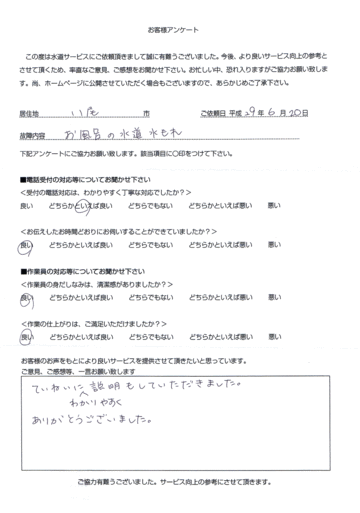 お客様アンケート
この度は水道サービスにご依頼頂きまして誠に有難うございました。今後、より良いサービス向上の参考と
させて頂くため、率直なご意見、ご感想をお聞かせ下さい。お忙しい中、恐れ入りますがご協力お願い致しま
す。尚、ホームページに公開させていただく場合もございますので、あらかじめご了承下さい。
居住地 八尾 市 ご依頼日 平成 29年 6月 20日
故障内容 お風呂の水道水もれ
下記アンケートにご協力お願い致します。該当項目に〇印をつけて下さい。
■電話受付の対応等についてお聞かせ下さい
<受付の電話対応は、わかりやすく丁寧な対応でしたか?>
良い どちらかといえば良い どちらでもない どちらかといえば悪い 悪い
<お伝えしたお時間どおりにお伺いすることができていましたか?>
良い どちらかといえば良い どちらでもない どちらかといえば悪い 悪い
■作業員の対応等についてお聞かせ下さい
<作業員の身だしなみは、清潔感がありましたか?>
良い どちらかといえば良い どちらでもない どちらかといえば悪い 悪い
<作業の仕上がりは、ご満足いただけましたか?>
良い どちらかといえば良い どちらでもない どちらかといえば悪い 悪い
お客様のお声をもとにより良いサービスを提供させて頂きたいと思っています。
ご意見、ご感想等、一言お願い致します
ていねいに説明もしていただきました。
わかりやすく
ありがとうございました。
ご協力有難うございました。サービス向上の参考にさせて頂きます。